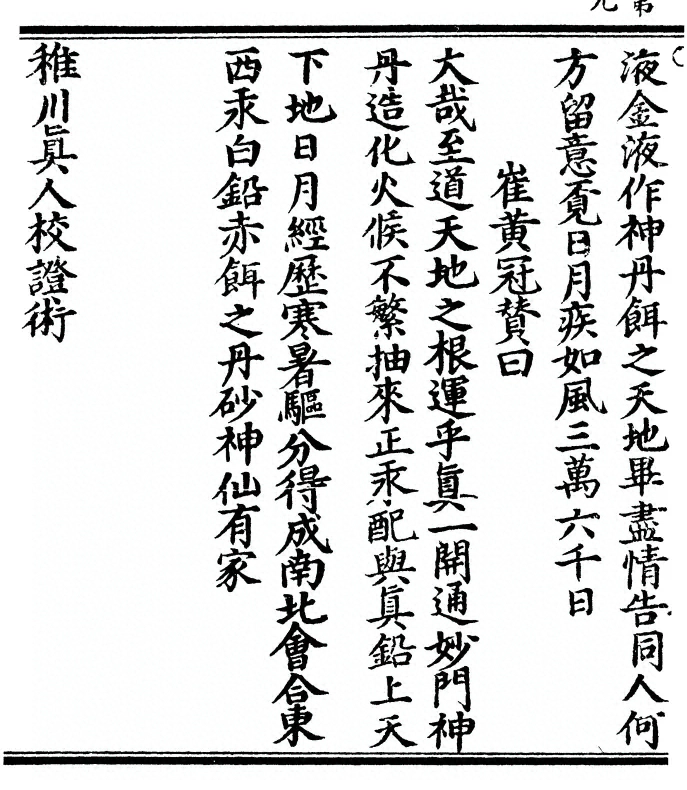 液金液作神丹餌之天地畢盡情告同人何
方留意覔日月疾如風三萬六千日
崔黃冠贊曰
大哉至道天地之根運乎眞一開通妙門神
丹造化火候不繁抽來正汞配與眞鉛上天
下地日月經歷寒暑驅分得成南北會合東
西汞白鉛赤餌之丹砂神仙有家
稚川眞人校證術